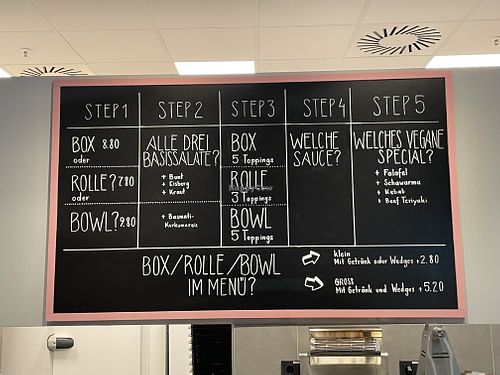 STEP 1
BOX 8.80
oder
ROLLE? 7.80
oder
BOWL? 9.80
STEP 2
ALLE DREI
BASISSALATE?
+ Bunt
+ Eisberg
+ Kraut
+ Basmati-
Kurkumareis
STEP 3
BOX
5 Toppings
ROLLE
3 Toppings
BOWL
5 Toppings
STEP 4
WELCHE
SAUCE?
STEP 5
WELCHES VEGANE
SPECIAL?
+ Falafel
+ Schawarma
+ Kebab
+ Beef Teriyaki
BOX/ROLLE/BOWL
IM MENÜ?
klein
Mit Getränk oder Wedges +2.80
GROSS
Mit Getränk und Wedges +5.20